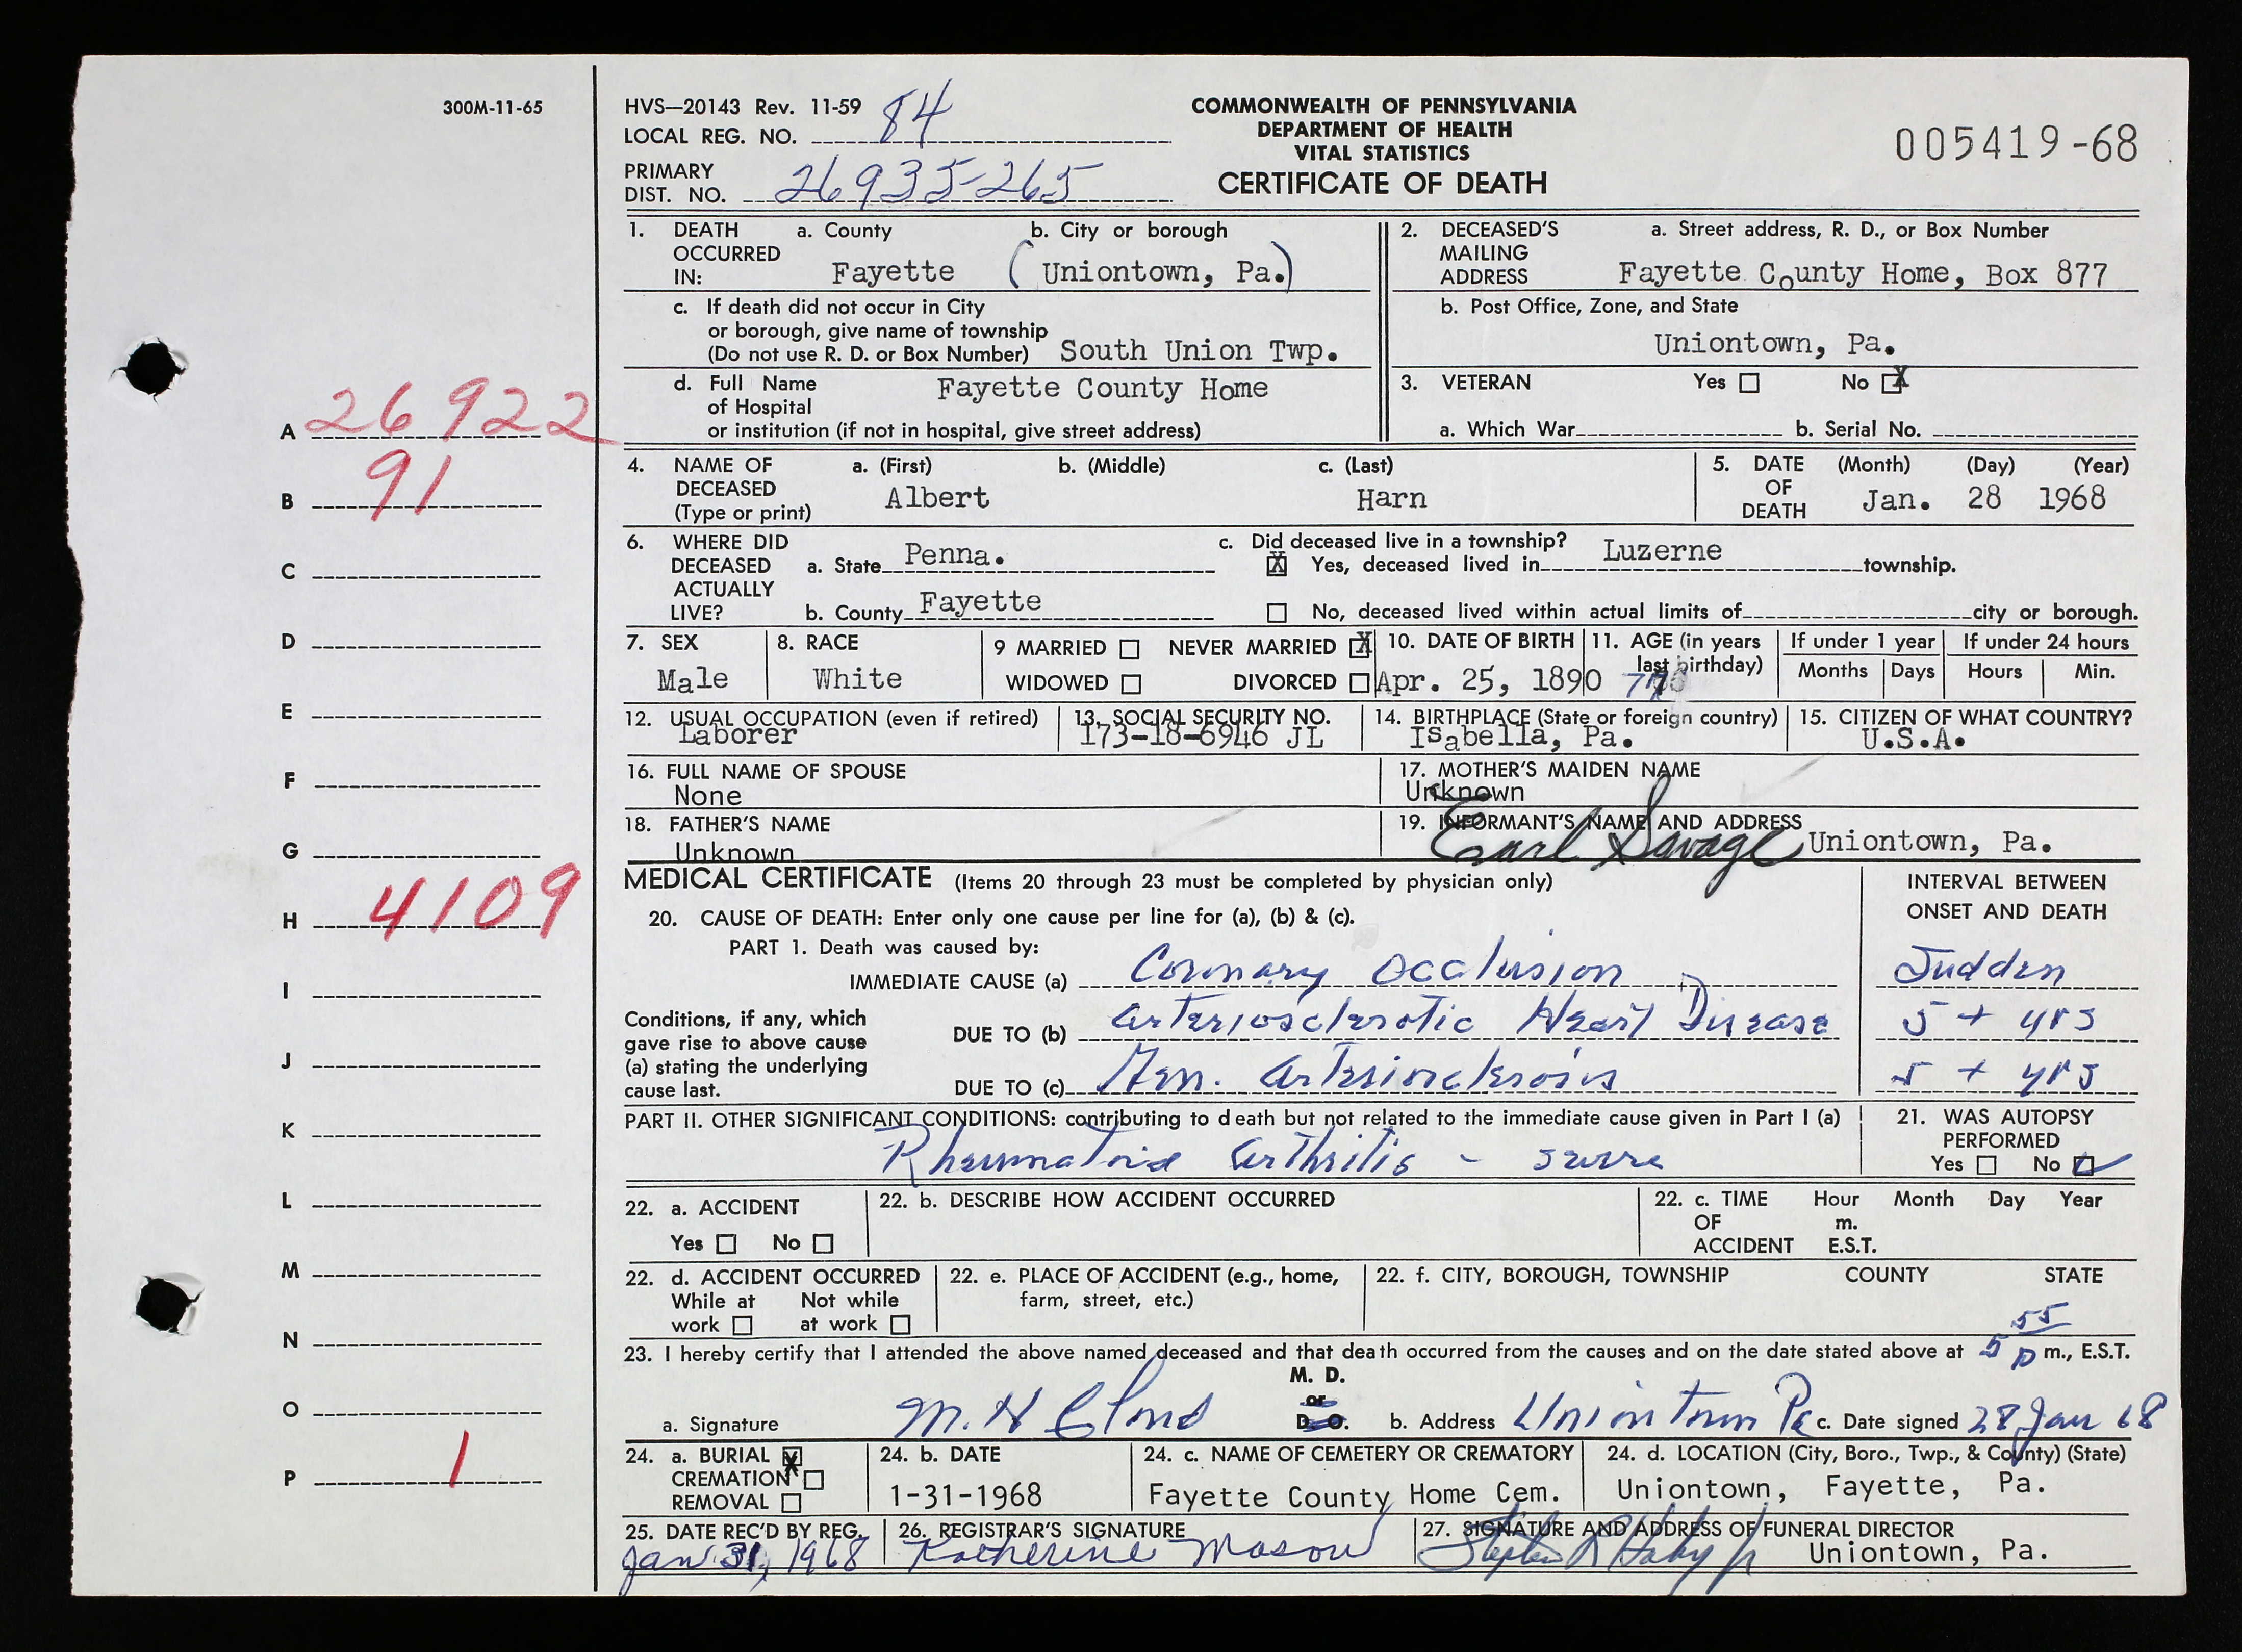 300M-11-65
HVS—20143 Rev. 11-59
LOCAL REG. NO. 84
PRIMARY
DIST. NO. 26935-265
COMMONWEALTH OF PENNSYLVANIA
DEPARTMENT OF HEALTH
VITAL STATISTICS
CERTIFICATE OF DEATH
005419-68
1. DEATH OCCURRED IN: a. County Fayette b. City or borough (Uniontown, Pa.)
c. If death did not occur in City
or borough, give name of township
(Do not use R. D. or Box Number) South Union Twp.
d. Full Name Fayette County Home
of Hospital
or institution (if not in hospital, give street address)
2. DECEASED'S MAILING ADDRESS a. Street address, R. D., or Box Number
Fayette County Home, Box 877
b. Post Office, Zone, and State
Uniontown, Pa.
3. VETERAN Yes No X
a. Which War b. Serial No.
4. NAME OF DECEASED (Type or print) a. (First) Albert b. (Middle) c. (Last) Harn
5. DATE OF DEATH (Month) (Day) (Year)
Jan. 28 1968
6. WHERE DID DECEASED ACTUALLY LIVE? a. State Penna.
b. County Fayette
c. Did deceased live in a township?
X Yes, deceased lived in Luzerne township.
No, deceased lived within actual limits of city or borough.
7. SEX Male
8. RACE White
9 MARRIED NEVER MARRIED X
WIDOWED DIVORCED
10. DATE OF BIRTH Apr. 25, 1890
11. AGE (in years last birthday)
If under 1 year Months Days
If under 24 hours Hours Min.
12. USUAL OCCUPATION (even if retired)
Laborer
13. SOCIAL SECURITY NO.
173-18-6946 JL
14. BIRTHPLACE (State or foreign country)
Isabella, Pa.
15. CITIZEN OF WHAT COUNTRY?
U.S.A.
16. FULL NAME OF SPOUSE
None
17. MOTHER'S MAIDEN NAME
Unknown
18. FATHER'S NAME
Unknown
19. INFORMANT'S NAME AND ADDRESS
Earl Savage Uniontown, Pa.
MEDICAL CERTIFICATE (Items 20 through 23 must be completed by physician only)
INTERVAL BETWEEN
ONSET AND DEATH
20. CAUSE OF DEATH: Enter only one cause per line for (a), (b) & (c).
PART 1. Death was caused by:
IMMEDIATE CAUSE (a) Coronary Occlusion Sudden
Conditions, if any, which
gave rise to above cause
(a) stating the underlying
cause last.
DUE TO (b) Arteriosclerotic Heart Disease 5 + yrs
DUE TO (c) Gen. Arteriosclerosis 5 + yrs
PART II. OTHER SIGNIFICANT CONDITIONS: contributing to death but not related to the immediate cause given in Part I (a)
Rheumatoid Arthritis - severe
21. WAS AUTOPSY
PERFORMED
Yes No
22. a. ACCIDENT
Yes No
22. b. DESCRIBE HOW ACCIDENT OCCURRED
22. c. TIME OF ACCIDENT Hour Month Day Year
m.
E.S.T.
22. d. ACCIDENT OCCURRED
While at work Not while at work
22. e. PLACE OF ACCIDENT (e.g., home,
farm, street, etc.)
22. f. CITY, BOROUGH, TOWNSHIP COUNTY STATE
23. I hereby certify that I attended the above named deceased and that death occurred from the causes and on the date stated above at 5 55 p m., E.S.T.
a. Signature M. H. Cloud M. D.
or
D. O.
b. Address Uniontown Pa c. Date signed 28 Jan 68
24. a. BURIAL X
CREMATION
REMOVAL
24. b. DATE
1-31-1968
24. c. NAME OF CEMETERY OR CREMATORY
Fayette County Home Cem.
24. d. LOCATION (City, Boro., Twp., & County) (State)
Uniontown, Fayette, Pa.
25. DATE REC'D BY REG.
Jan 31, 1968
26. REGISTRAR'S SIGNATURE
Katherine Mason
27. SIGNATURE AND ADDRESS OF FUNERAL DIRECTOR
Stephen R Haky Jr Uniontown, Pa.
A 26922
B 91
C
D
E
F
G
H 4109
I
J
K
L
M
N
O
P 1